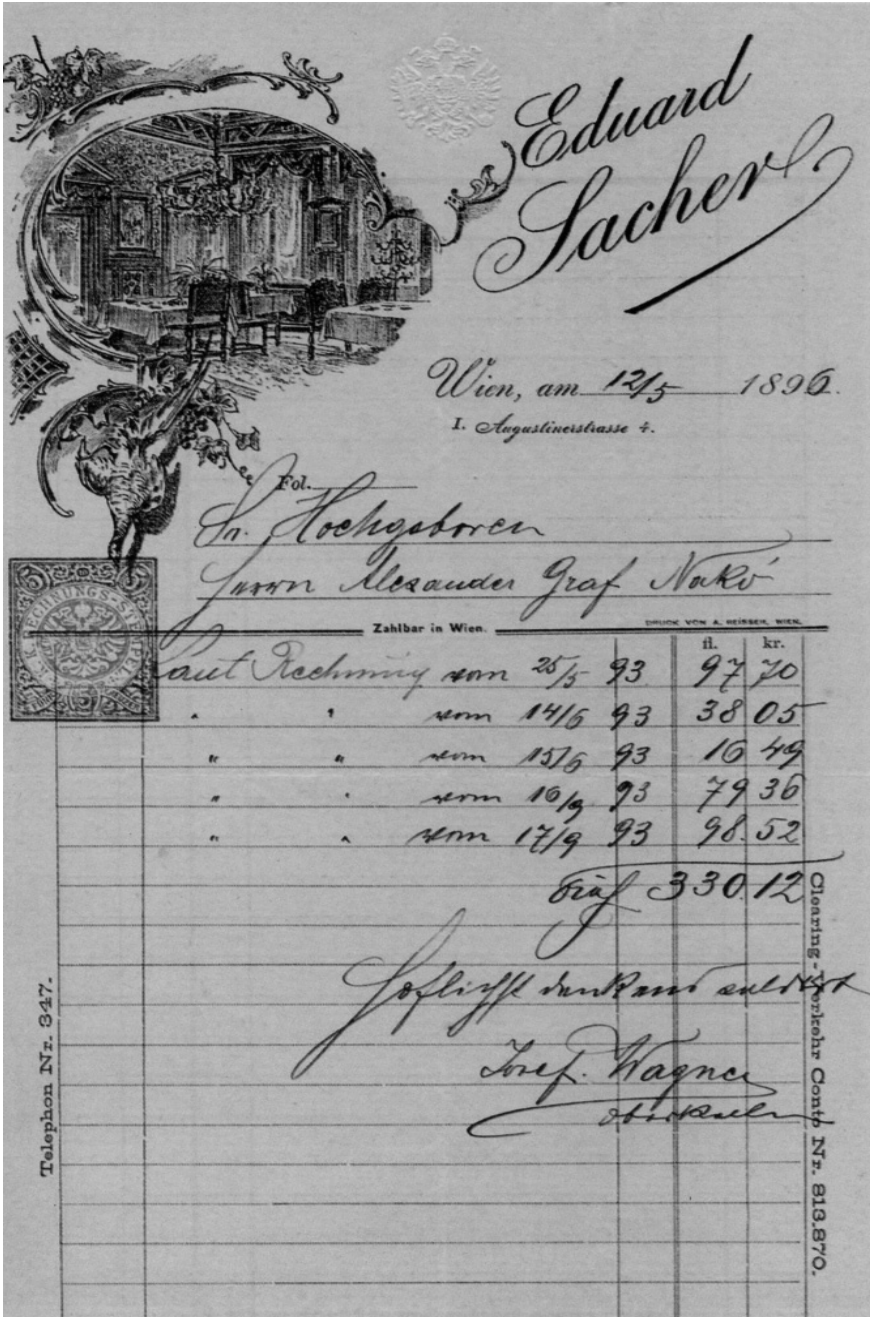 Eduard
Sacher
Wien, am 12/5 1896.
I. Augustinerstrasse 4.
Fol.
Sr. Hochgeboren
Herrn Alexander Graf Nakó
K. K. RECHNUNGS-STEMPEL
Zahlbar in Wien.
DRUCK VON A. REISSER, WIEN.
fl. kr.
Laut Rechnung vom 25/5 93 97 70
" " vom 14/6 93 38 05
" " vom 15/6 93 16 49
" " vom 16/9 93 79 36
" " vom 17/9 93 98.52
330.12
Höflichst dankend saldirt
Josef Wagner
Telephon Nr. 347.
Clearing-Verkehr Conto Nr. 813.870.